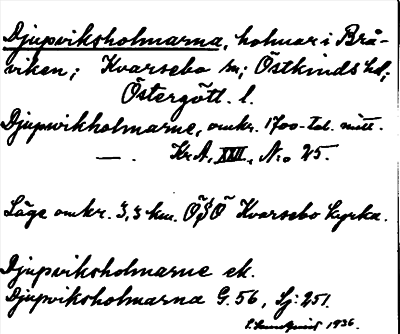 Djupviksholmarna, holmar i Brå-
viken; Kvarsebo sn; Östkinds hd;
Östergötl. l.
Djupwikholmarne, omkr. 1700-tal. mitt.
— . Kr.A. XXII, N:o 25.
Läge omkr. 3,3 km. ÖSÖ Kvarsebo kyrka.
Djupviksholmarne ek.
Djupviksholmarna G. 56, Sj: 251.
1936.